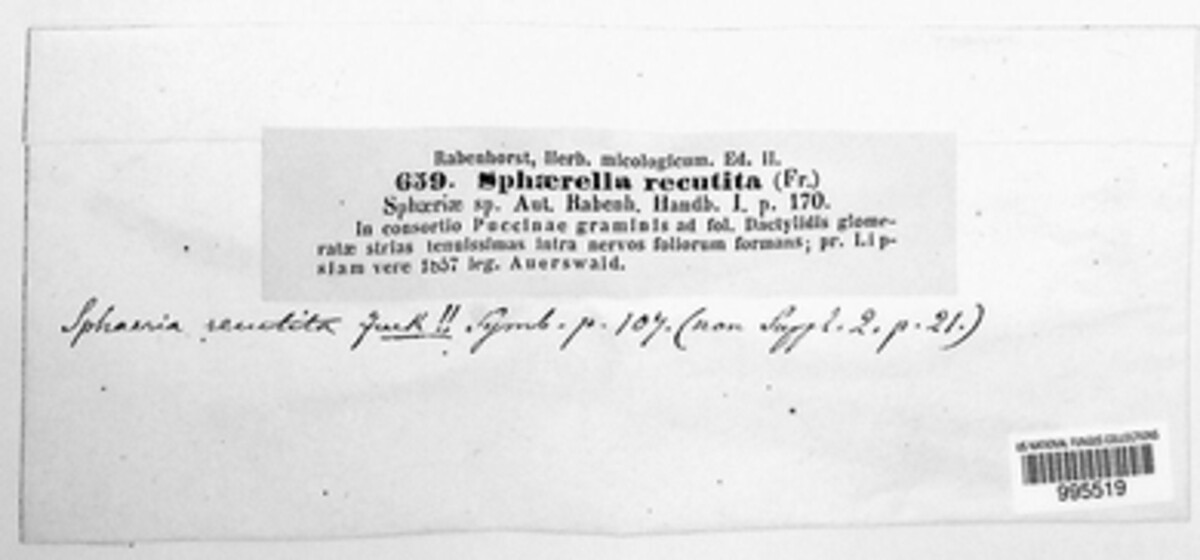 Rabenhorst, Herb. micologicum. Ed. II.
659. Sphærella recutita (Fr.)
Sphæriæ sp. Aut. Rabenh. Handb. I. p. 170.
In consortio Puccinae graminis ad fol. Dactylidis glome-
ratæ strias tenuissimas intra nervos foliorum formans; pr. Lip-
siam vere 1857 leg. Auerswald.
Sphaeria recutita Fuck!! Symb. p. 107. (non Suppl. 2. p. 21.)
US NATIONAL FUNGUS COLLECTIONS
995519